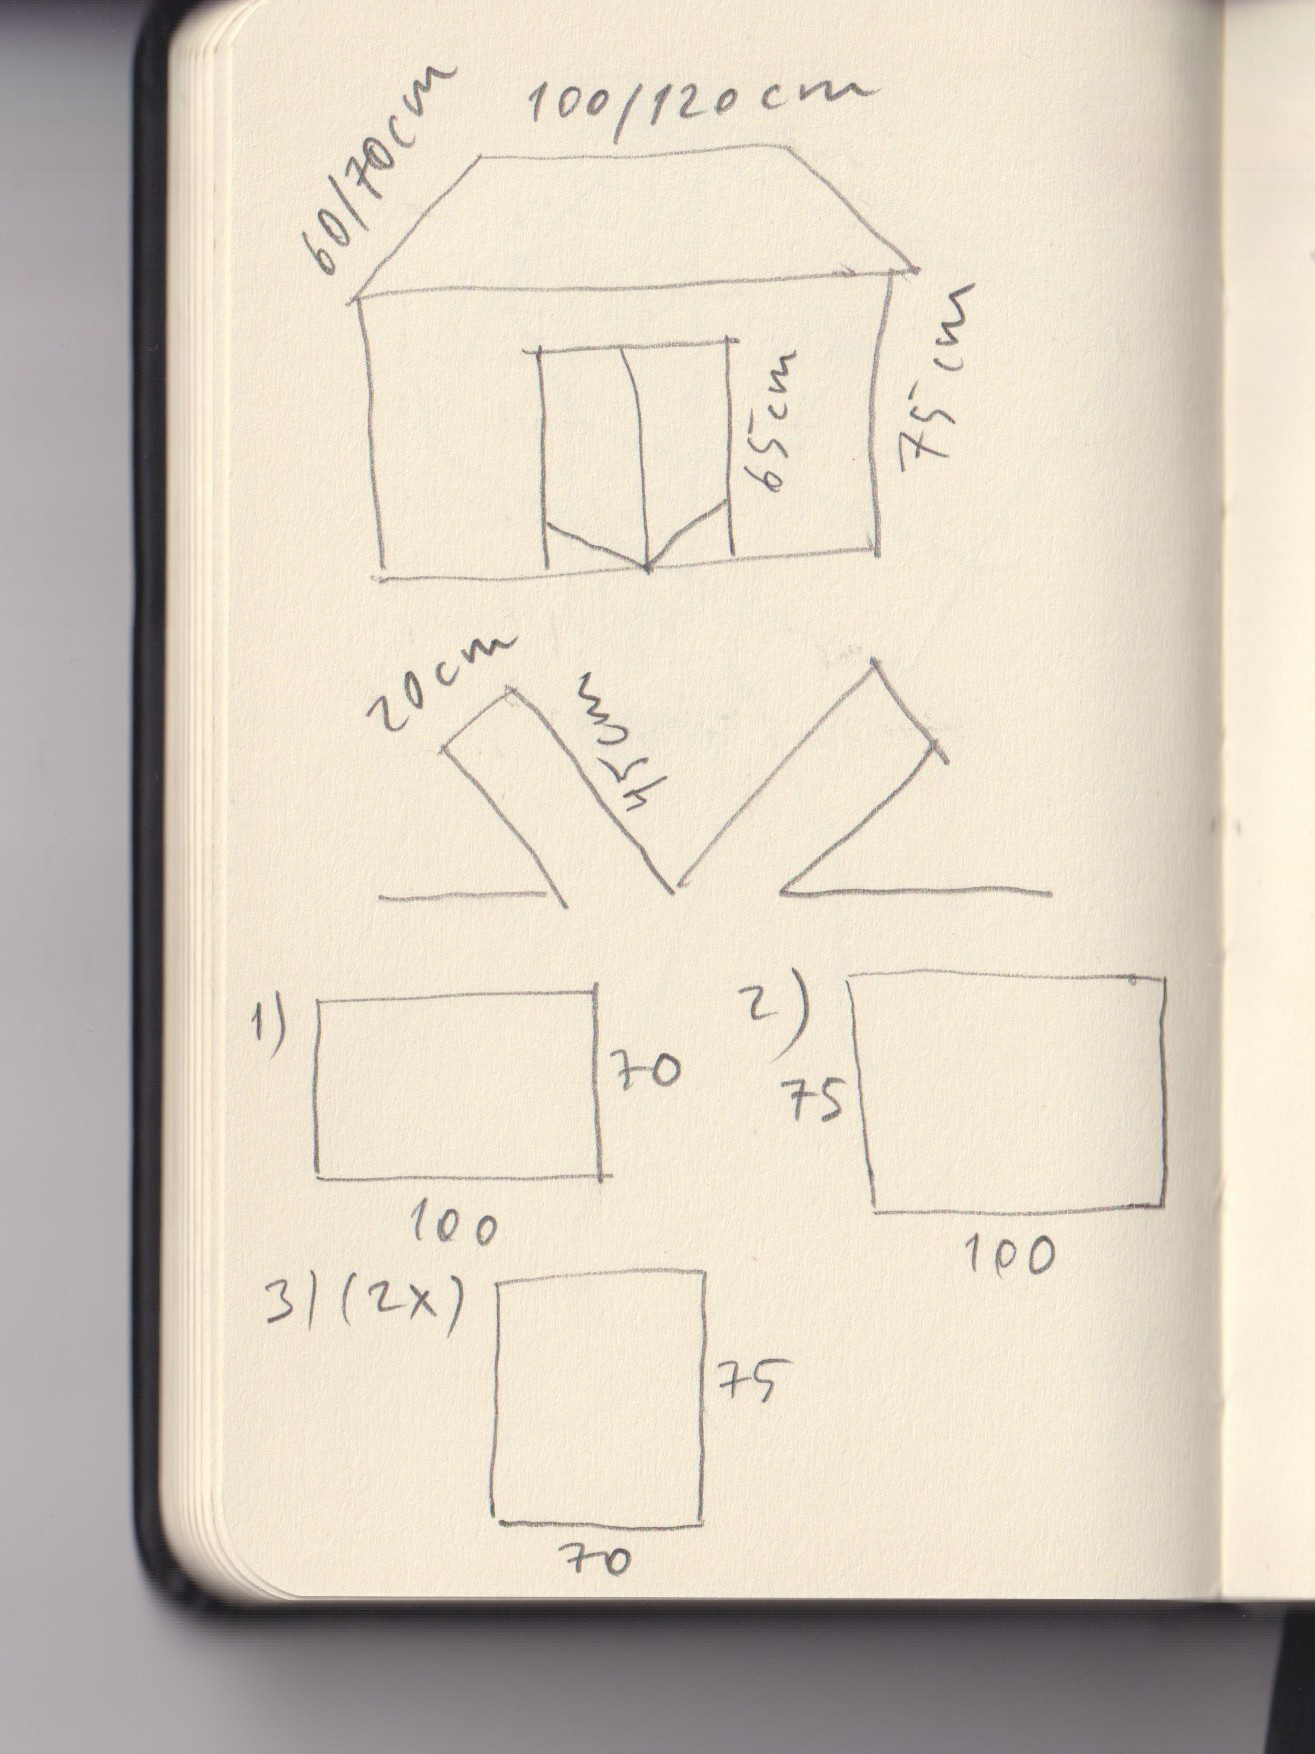 60/70cm
100/120cm
75cm
65cm
20cm
45cm
1)
70
100
2)
75
100
3) (2x)
75
70